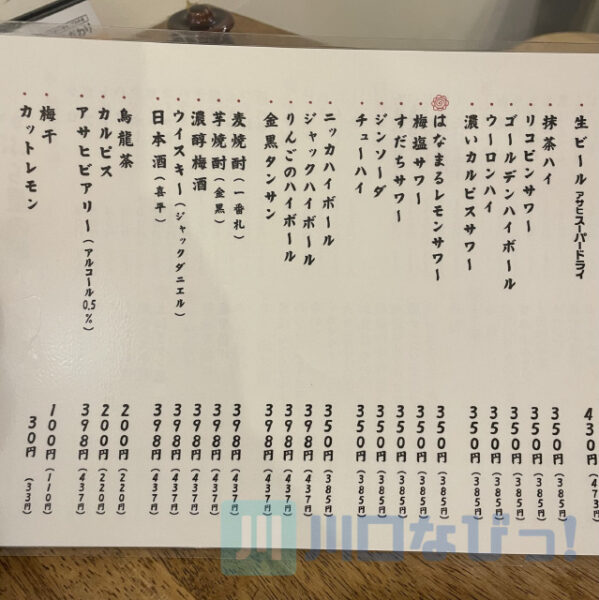 ・生ビール アサヒスーパードライ 430円(473円)
・抹茶ハイ 350円(385円)
・リコピンサワー 350円(385円)
・ゴールデンハイボール 350円(385円)
・ウーロンハイ 350円(385円)
・濃いカルピスサワー 350円(385円)
はなまるレモンサワー 350円(385円)
・梅塩サワー 350円(385円)
・すだちサワー 350円(385円)
・ジンソーダ 350円(385円)
・チューハイ 350円(385円)
・ニッカハイボール 350円(385円)
・ジャックハイボール 398円(437円)
・りんごのハイボール 398円(437円)
・金黒タンサン 398円(437円)
・麦焼酎(一番札) 398円(437円)
・芋焼酎(金黒) 398円(437円)
・濃醇梅酒 398円(437円)
・ウイスキー(ジャックダニエル) 398円(437円)
・日本酒(喜平) 398円(437円)
・烏龍茶 200円(220円)
・カルピス 200円(220円)
・アサヒビアリー(アルコール0.5%) 398円(437円)
・梅干 100円(110円)
・カットレモン 30円(33円)
川口なびっ!